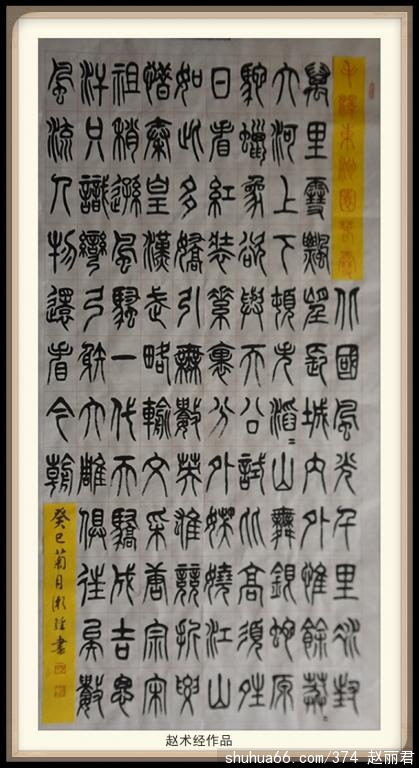 毛澤東沁園春雪
北國風光千里冰封
萬里雪飄望長城內外惟餘莽〻
大河上下頓失滔〻山舞銀蛇原
馳蠟象欲與天公試比高須晴
日看紅裝素裹分外妖嬈江山
如此多嬌引無數英雄競折腰
惜秦皇漢武略輸文采唐宗宋
祖稍遜風騷一代天驕成吉思
汗只識彎弓射大雕俱往矣數
風流人物還看今朝
癸巳菊月術經書
赵术经作品
shuhua66.com/374 赵丽君